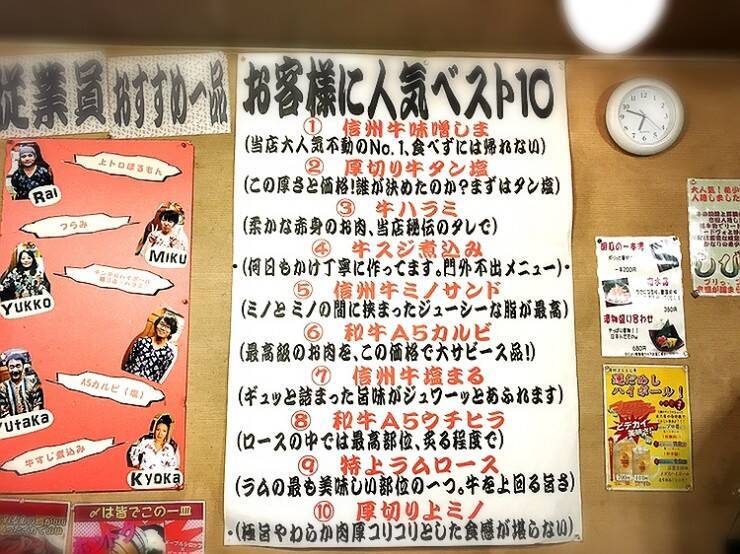 従業員おすすめ一品
上トロほるもん
Rai
つらみ
MIKU
YUKKO
A5カルビ(塩)
Yutaka
牛すじ煮込み
Kyoka
〆は皆でこの一皿
お客様に人気ベスト10
① 信州牛味噌しま
(当店大人気不動のNo.1、食べずには帰れない)
② 厚切り牛タン塩
(この厚さと価格!誰が決めたのか?まずはタン塩)
③ 牛ハラミ
(柔かな赤身のお肉、当店秘伝のタレで)
④ 牛スジ煮込み
(何日もかけ丁寧に作ってます。門外不出メニュー)
⑤ 信州牛ミノサンド
(ミノとミノの間に挟まったジューシーな脂が最高)
⑥ 和牛A5カルビ
(最高級のお肉を、この価格で大サービス品!)
⑦ 信州牛塩まる
(ギュッと詰まった旨味がジュワーッとあふれます)
⑧ 和牛A5ウチヒラ
(ロースの中では最高部位、炙る程度で)
⑨ 特上ラムロース
(ラムの最も美味しい部位の一つ。牛を上回る旨さ)
⑩ 厚切り上ミノ
(極旨やわらか肉厚コリコリとした食感が堪らない)
200円
380円
漬物盛り合わせ
680円
ハイボール!